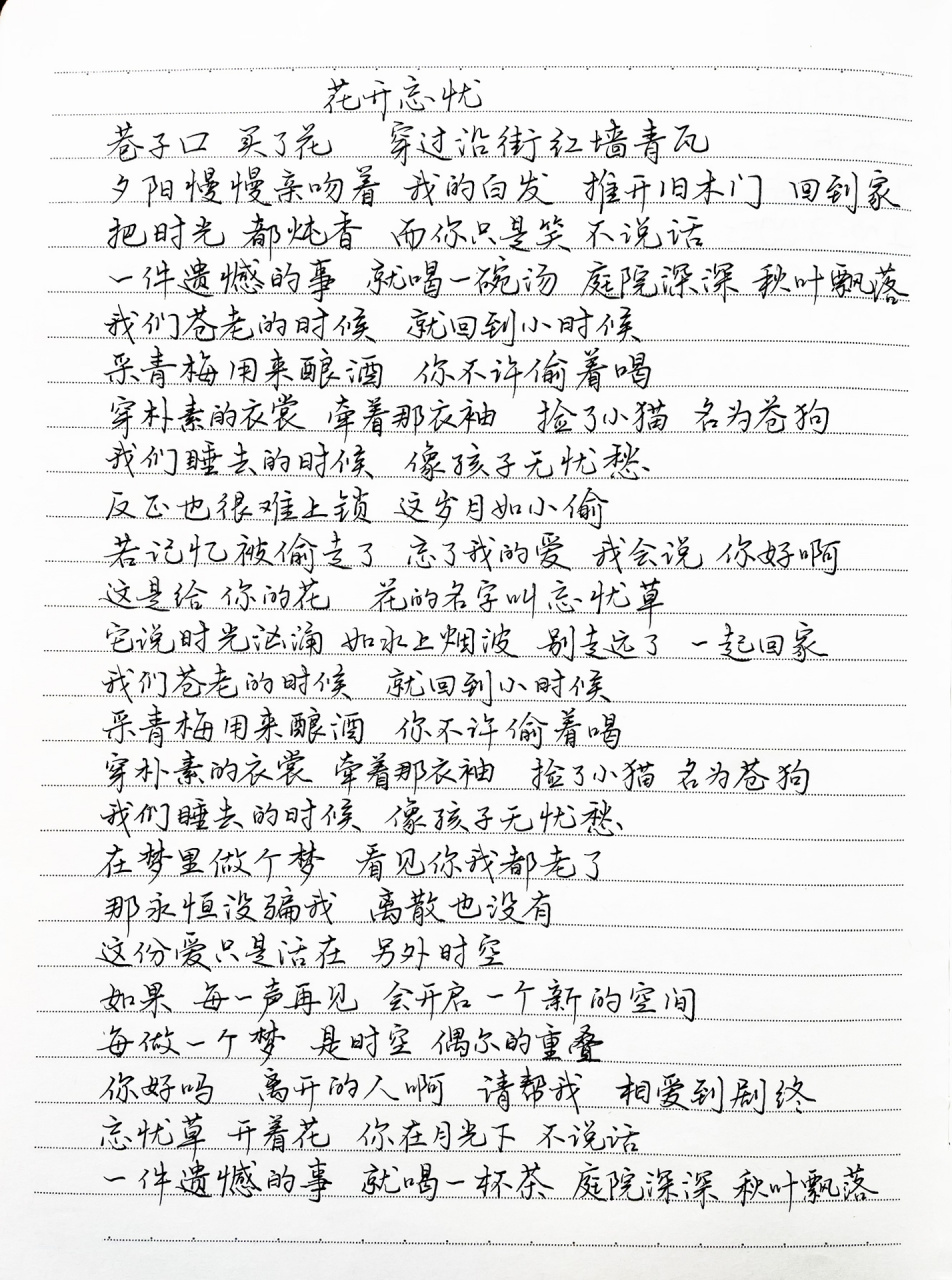 花开忘忧
巷子口 买了花 穿过沿街红墙青瓦
夕阳慢慢亲吻着 我的白发 推开旧木门 回到家
把时光 都炖香 而你只是笑 不说话
一件遗憾的事 就喝一碗汤 庭院深深 秋叶飘落
我们苍老的时候 就回到小时候
采青梅用来酿酒 你不许偷着喝
穿朴素的衣裳 牵着那衣袖 捡了小猫 名为苍狗
我们睡去的时候 像孩子无忧愁
反正也很难上锁 这岁月如小偷
若记忆被偷走了 忘了我的爱 我会说 你好啊
这是给 你的花 花的名字叫忘忧草
它说时光汹涌 如水上烟波 别走远了 一起回家
我们苍老的时候 就回到小时候
采青梅用来酿酒 你不许偷着喝
穿朴素的衣裳 牵着那衣袖 捡了小猫 名为苍狗
我们睡去的时候 像孩子无忧愁
在梦里做个梦 看见你我都老了
那永恒没骗我 离散也没有
这份爱只是活在 另外时空
如果 每一声再见 会开启一个新的空间
每做一个梦 是时空 偶尔的重叠
你好吗 离开的人啊 请帮我 相爱到剧终
忘忧草 开着花 你在月光下 不说话
一件遗憾的事 就喝一杯茶 庭院深深 秋叶飘落